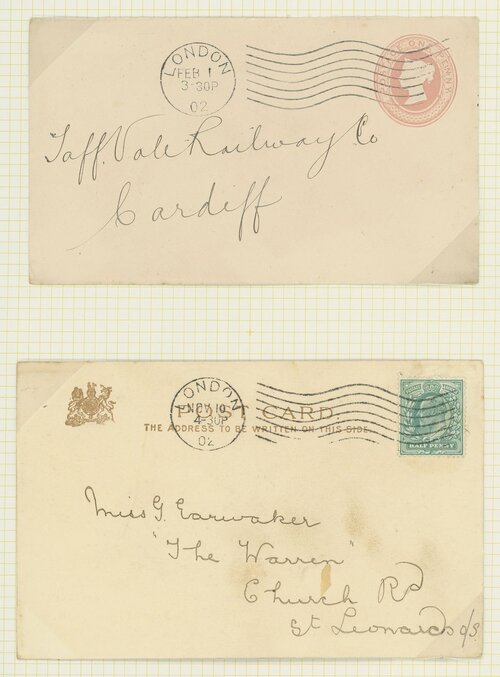 LONDON
FEB 1
3-30P
02
POSTAGE ONE PENNY
Taff Vale Railway Co
Cardiff
LONDON
NOV 10
4-30P
02
POST CARD.
THE ADDRESS TO BE WRITTEN ON THIS SIDE.
HALF PENNY
Miss G. Earwaker
"The Warren"
Church Rd
St Leonards o/s